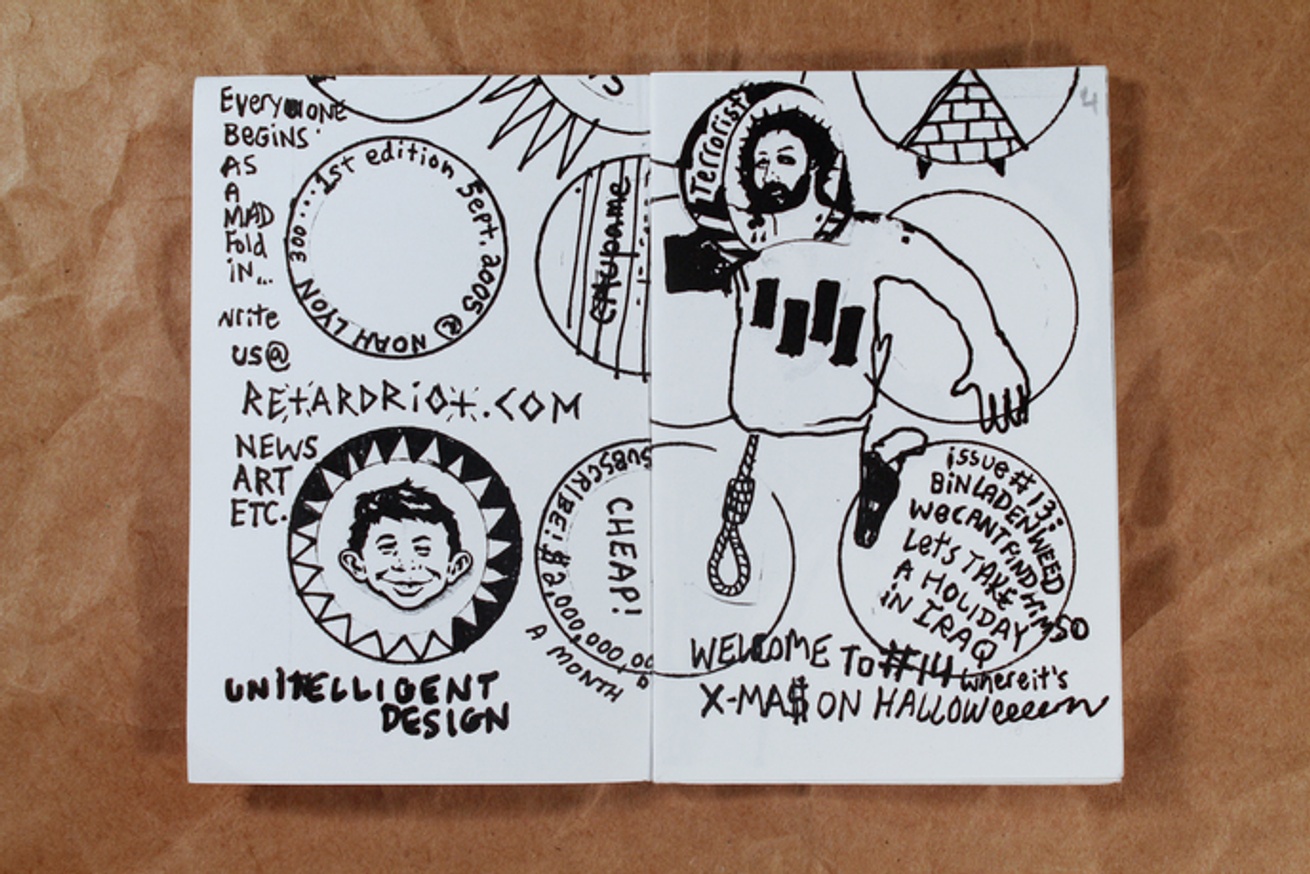 Everyone
BEGINS
AS
A
MAD
Fold
iN...
write
us@
RETARDRiOT.COM
NEWS
ART
ETC.
300...1st edition Sept. 2005 © NOAH LYON
SUBSCRIBE! $2,000,000,00
CHEAP!
A MONTH
UNITELLIGENT
DESIGN
Terrorist
4
issue #13:
BiNLADEN/WEED
WeCANTFiND HiM SO
Let's TAKE
A HOLIDAY
iN IRAQ
WELCOME To #14 where it's
X-MA$ ON HALLOWeeeen